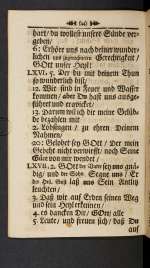 (44)
hart/ du wollest unsere Sünde ver-
geben/
6: Erhöre uns nach deiner wunder-
lichen und Gerechtigkeit/
GOtt unser Heyl!
LXVI. 5. Der du mit deinem Thun
so wunderlich bist/
12. Wir sind in Feuer und Wasser
kommen/ aber Du hast uns ausge-
führet und erquicket/
13. Darum wil ich Dir meine Gelüb-
de bezahlen mit
2. Lobsingen/ zu ehren Deinem
Nahmen/
20: Gelobet sey GOtt/ Der mein
Gebeht nicht verwirfft/ noch Seine
Güte von mir wendet/
LXVII. 2. GOtt der Vater sey uns gnä-
dig/ und der Sohn Segne uns/ Er
der Heil. Geist laß uns Sein Antlitz
leuchten/
3. Daß wir auf Erden seinen Weg
und sein Heyl erkennen/
4. es dancken Dir/ GOtt/ alle
5. Leute/ und freuen sich/ daß Du
auf